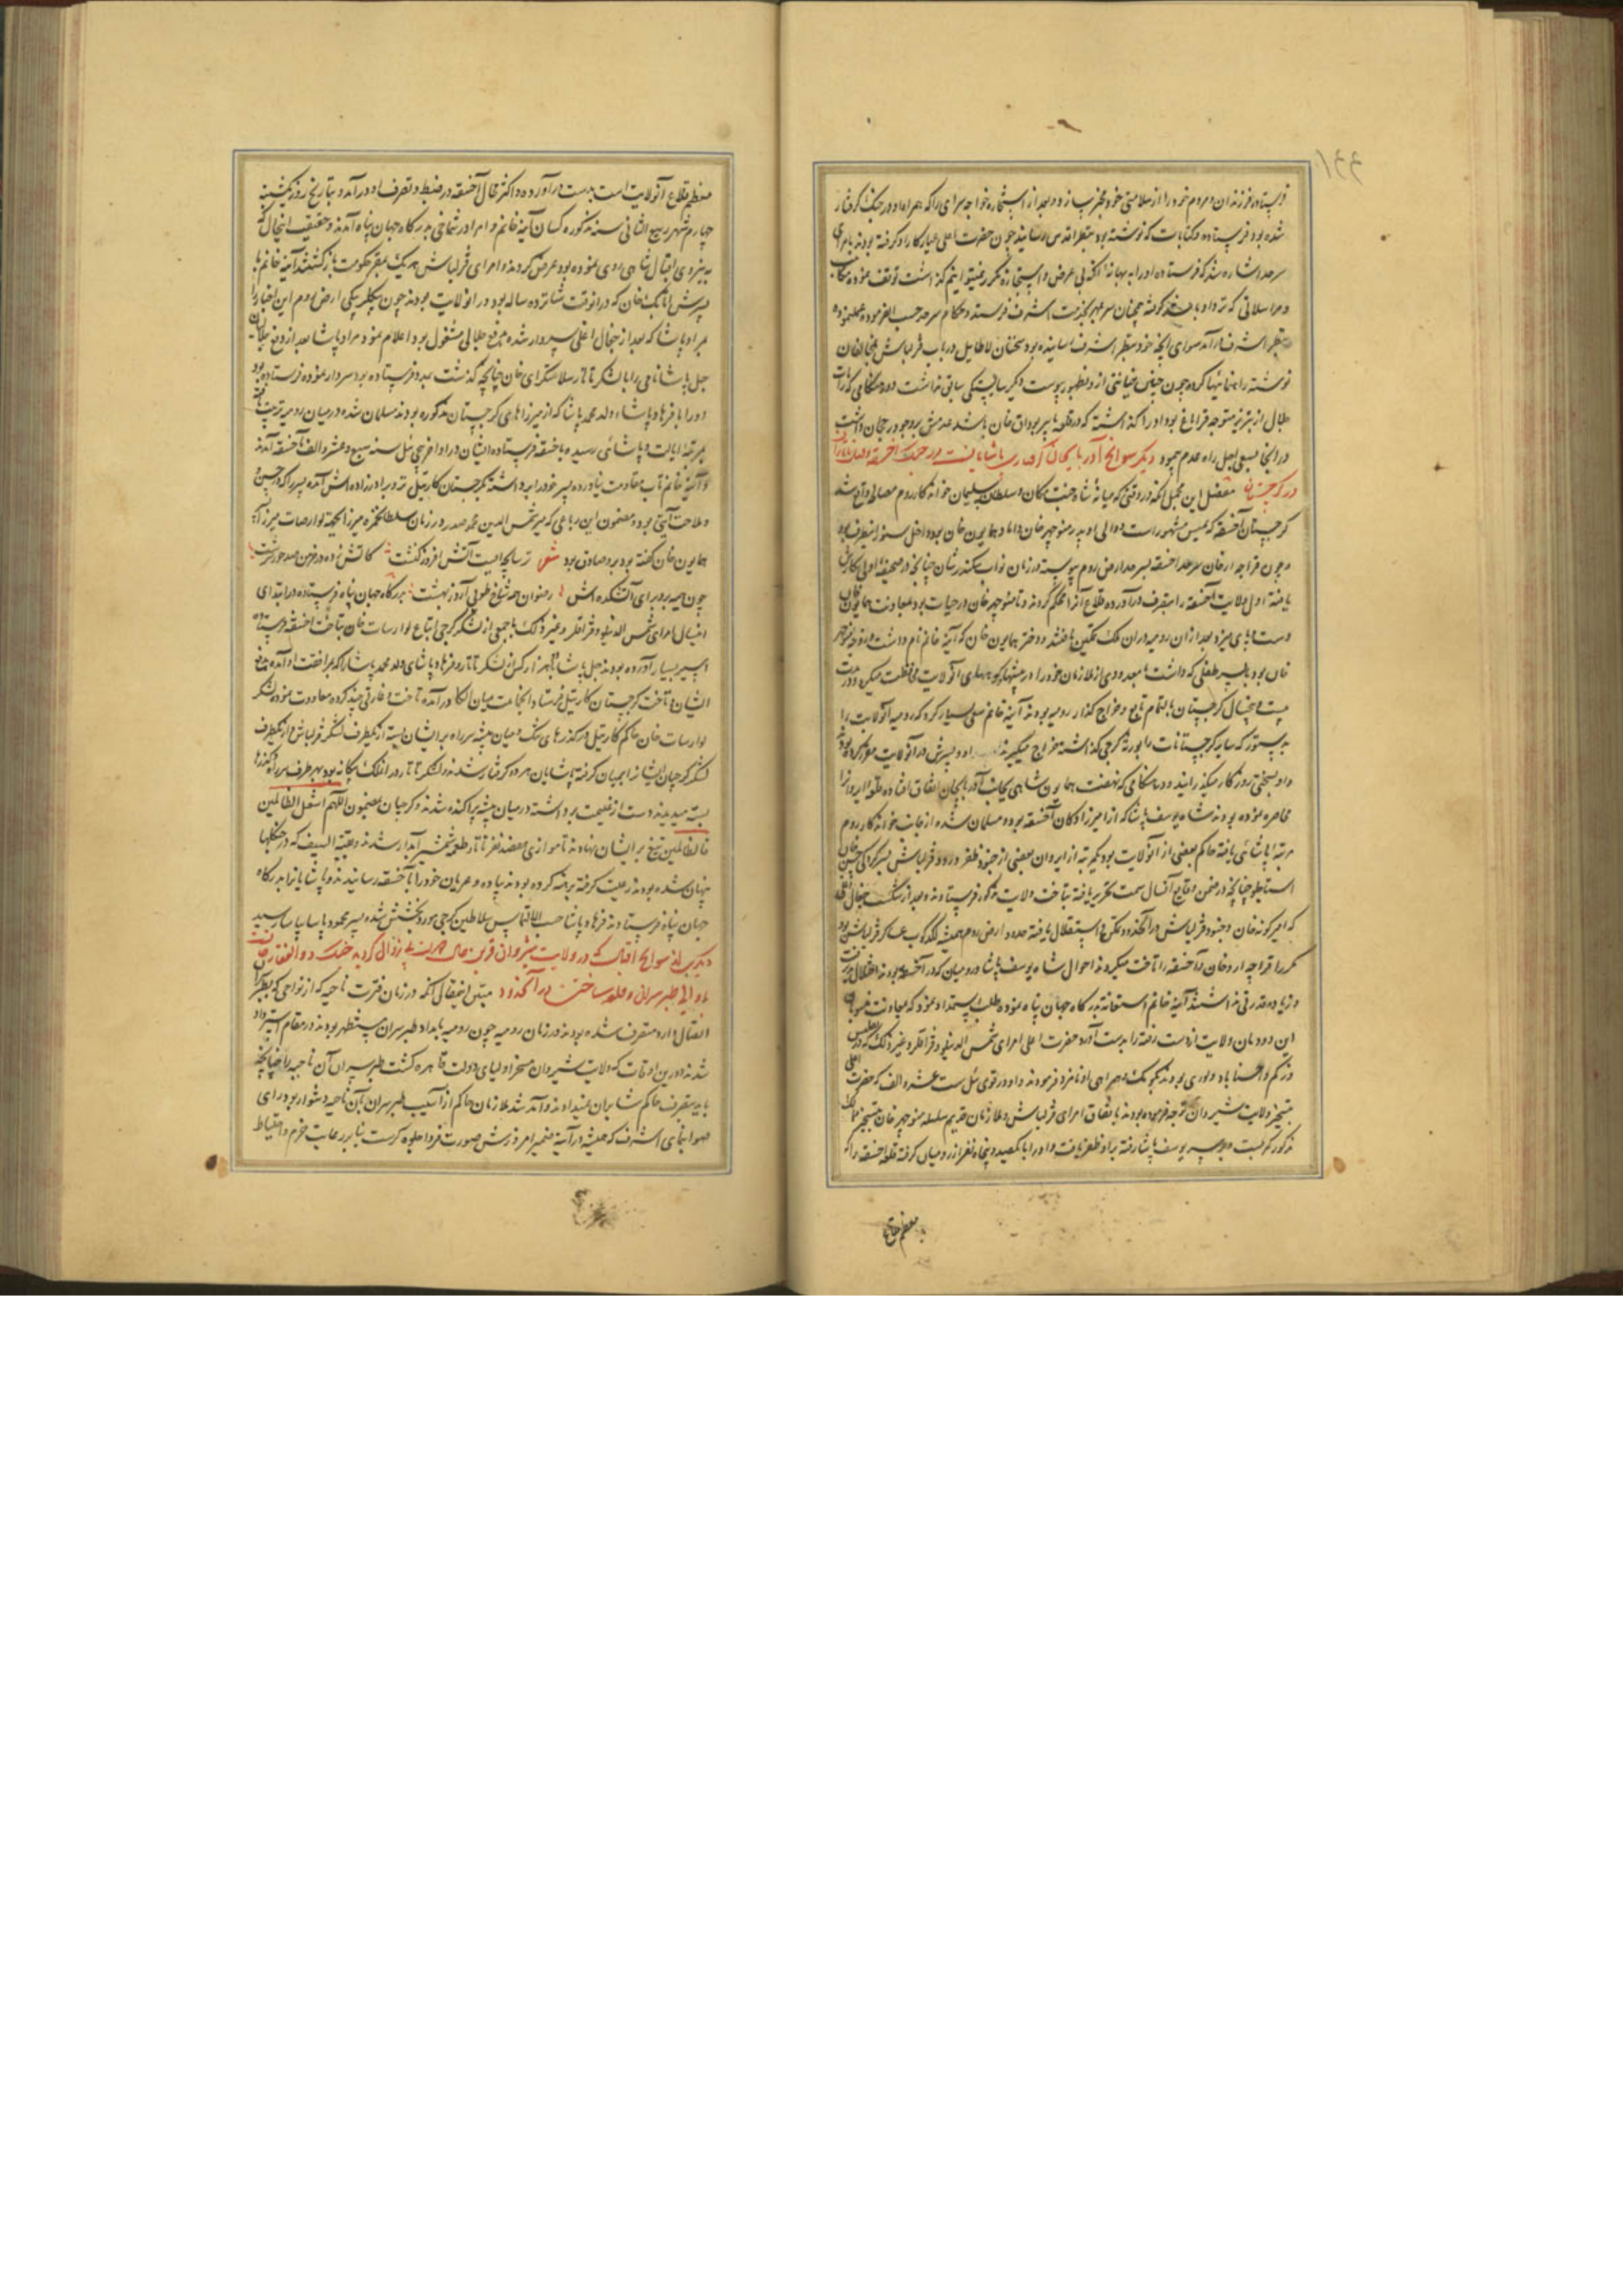 فرستاده فرزندان و مردم خود را از سلامتی خود مخبر سازد و بعد از استجازه خواجه سرای را که همراه او در جنک کرفتار
شده بود فرستاده و کتابات که نوشته بود بنظر اقدس رسانید چون حضرت اعلی عیار کار او کرفته بودند بامرای
سرحد اشاره شد که فرستاده او را به بهانه آنکه بی عرض و استجازه مکرر نمیتوانیم کذاشت توقف نموده
و مراسلاتی که ترداو باشد کرفته همچنان سر بمهر بخدمت اشرف فرستند و حکام سرحد حسب الفرموده عمل نموده
بنظر اشرف درآمد سوای آنچه خود بنظر اشرف رسانیده بود سخنان لاطایل در باب قزلباش بمخالفان
نوشته راهنمائیها کرده چون چنین خیانتی ازو بظهور پیوست دیکر سیاستی سابق نداشت در هنکامی که رایات
جلال از تبریز متوجه قراباغ بود او را کذاشت که در قلعه با پیر بوداق خان باشد عدمش بر وجود رجحان داشت
در انجا بسعی اجل راه عدم پیمود دیکر سوانح آذربایجان کرفتاری پاشایانست در جنک اخسقه
در کرجستان مفصل این مجمل آنکه در وقتی که میانه شاه جنت مکان و سلطان سلیمان خواندکار روم مصالحه واقع شد
کرجستان اخسقه که بمسق مشهور است و والی او پدر منوچهر خان داماد همایون خان بود داخل سنور اینطرف بود
و چون قراجه اردخان سرحد اخسقه بسرحد ارض روم پیوسته در زمان نواب سکندر شان چنانچه در صحیفه اولی نکارش
یافته اول ولایت اخسقه را بتصرف درآورده قلاع آنرا محکم کردند و تا منوچهر خان در حیات بود بمعاونت همایون خان
دست و پای میزد بعد از آن رومیه در آن ملک تمکین یافتند و دختر همایون خان که آینه خانم نام داشت و زوجه منوچهر
خان بود با پسر طفلی که داشت با معدودی از ملازمان خود را در بیشها و کوهسارهای آنولایت محافظت میکرد و درین مدت
بیست و پنجسال کرجستان بالتمام تابع و خراج کذار رومیه بودند آینه خانم سعی بسیار کرد که رومیه آنولایت را
بدستور که سایر کرجستانات را بورثه کرجی کذاشته خراج میکیرند باو و پسرش در آنولایت مقرر کرده بود
و او بسختی روزکار میکذرانید و در هنکامی که نهضت همایون شاهی بجانب آذربایجان اتفاق افتاده قلعه ایروان را
محاصره نموده بودند شاه یوسف پاشا که از امیرزادکان اخسقه بود و مسلمان شده از جانب خواندکار روم
مرتبه پاشائی یافته حاکم بعضی از آنولایت بود یکمرتبه از ایروان بعضی از جنود ظفر ورود قزلباش بسرکردکی حسین خان
استاجلو چنانچه در ضمن وقایع آنسال سمت تحریر یافته بتاخت ولایت مذکور فرستادند و بعد از شکست جغال اغلی
که امیرکونه خان و جنود قزلباش در آنحدود تمکن و استقلال یافته حدود ارض روم همیشه لکدکوب عساکر قزلباش بود
مکرر قراجه اردخان و اخسقه را تاخت میکردند احوال شاه یوسف پاشا و رومیان که در اخسقه بودند اختلال پذیرفت
و زیاده قدرتی نداشتند آینه خانم استغاثه بدرکاه جهان پناه نموده طلب استمداد نمود که بمعاونت منسوبان
این دودمان ولایت از دست رفته را بدست آورد حضرت اعلی امرای شمس الدینلو و قزاقلر و غیر ذلک که در تفلیس
و زکم و آقستاباد و لوری بودند بکومک و همراهی او نامزد فرمودند و او در قوی ئیل ست عشر و الف که حضرت اعلی
بتسخیر ولایت شیروان توجه فرموده بودند باتفاق امرای قزلباش و ملازمان قدیم سلسله منوچهر خان بتسخیر ملک
مذکور کمر بست و بر سر یوسف پاشا رفته بر او ظفر یافت و او را با یکصد و پنجاه نفر از رومیان کرفته قلعه اخسقه را که
معظم قلاع
معظم قلاع آنولایت است بدست درآورده و اکثر محال اخسقه در ضبط و تصرف او درآمد و بتاریخ روز یکشنبه
چهارم شهر ربیع الثانی سنه مذکوره کسان آینه خانم و امرا در شماخی بدرکاه جهان پناه آمدند و حقیقت اینحال که
به نیروی اقبال شاهی روی نموده بود عرض کردند و امرای قزلباش هر یک بمقر حکومت باز کشتند آینه خانم با
پسرش اتابک خان که در آنوقت شانزده ساله بود در آنولایت بودند چون بیکلربیکی ارض روم این اخبار را
بمراد پاشا که بعد از جغال اغلی سردار شده بدفع جلالی مشغول بود اعلام نمود مراد پاشا بعد از دفع جلالیان
جمل پاشا نامی را با لشکر تاتار سلامتکرای خان چنانچه کذشت بمدد فرستاده بود سردار نموده فرستاده بود
و او را با فرهاد پاشاء ولد محمد پاشا که از میرزاهای کرجستان مذکوره بودند مسلمان شده در میان رومیه تربیت یافته
بمرتبه ایالت و پاشائی رسیده باخسقه فرستاده ایشان در اواخر پیچی ئیل سنه سبع و عشر و الف باخسقه آمدند
و آینه خانم تاب مقاومت نیاورده پسر خود را برداشته بکرجستان کارتیل نزد برادرزاده اش آمده پسر را که در حسن
و ملاحت آیتی بود و مضمون این رباعی که میر شمس الدین محمد صدر در زمان سلطان حمزه میرزا بجهة لوارصات میرزا
همایون خان کفته بود برو صادق بود شعر ترسابچه ایست آتش افروز کنشت کاتش زده در خرمن صد حور سرشت
چون هیمه برو برای آتشکده اش رضوان همه شاخ طوبی آرد ز بهشت بدرکاه جهان پناه فرستاده در ابتدای
اینسال امرای شمس الدینلو و قزاقلر و غیر ذلک با جمعی از لشکر کرجی اتباع لوارصات خان بتاخت اخسقه رفته
اسیر بسیار آورده بودند جمل پاشا با هزار کس از لشکر تاتار و فرهاد پاشای ولد محمد پاشا را که بمرافقت او آمده بود بدفع
ایشان و تاخت کرجستان کارتیل فرستاد و انجماعت بمیان الکا درآمده تاخت و غارتی چند کرده معاودت نمودند لشکر
لوارصات خان حاکم کارتیل در کذرهای تنک و میان بیشه سر راه بر ایشان بسته از یکطرف لشکر قزلباش و از یکطرف
لشکر کرجیان ایشانرا بمیان کرفته پاشایان هر دو کرفتار شدند و لشکر تاتار در آنملک بیکانه بود بهر طرف سر راه کذرها
بسته میدیدند دست از غنیمت برداشته در میان بیشه پراکنده شدند و کرجیان بمضمون اللهم اشغل الظالمین
بالظالمین تیغ بر ایشان نهادند تا موازی هفصد نفر تاتار طعمه شمشیر آبدار شدند و بقیة السیف که در جنکلها
پنهان شده بودند رعیت کرفته برهنه کرده بودند پیاده و عریان خود را باخسقه رسانیدند و پاشایانرا بدرکاه
جهان پناه فرستادند فرهاد پاشا حسب الالتماس سلاطین کرجی مورد بخشش شده پسر محمود پاشا بیاسا رسید
دیکر از سوانح اقبال که در ولایت شیروان قرین حال دولت بی زوال کردید جنک ذوالفقار خان
با والی طبرسران و قلعه ساختن در آنحدود مبین اینمقال آنکه در زمان فترت ناحیه که از نواحی
اتصال دارد متصرف شده بودند در زمان رومیه چون رومیه بامداد طبرسران مستظهر بودند در مقام استرداد
شدند درین اوقات که ولایت شیروان مسخر اولیای دولت قاهره کشت طبرسران آن ناحیه را چنانچه
باید بتصرف حاکم شابران نمیدادند و آمد شد ملازمان حاکم از آسیب طبرسران بآن ناحیه دشوار بود رای
صوابنمای اشرف که همیشه در آینه ضمیر امروزش صورت فردا جلوه کرست بنابر رعایت حزم و احتیاط